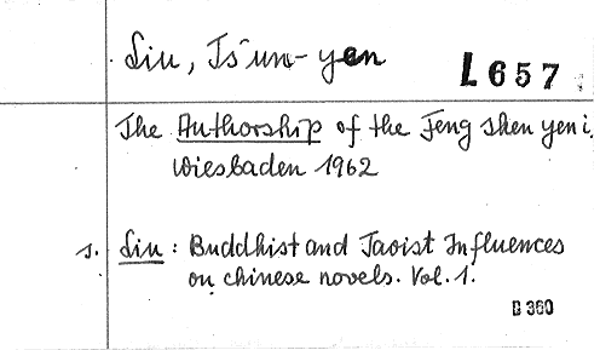 Liu, Ts'un-yen
L 657
The Authorship of the Feng shen yen i,
Wiesbaden 1962
s. Liu: Buddhist and Taoist Influences
on chinese novels. Vol. 1.
B 360